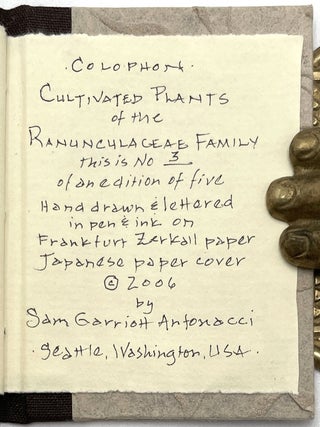 · COLOPHON ·
CULTIVATED PLANTS
of the
RANUNCULACEAE FAMILY
this is No 3
of an edition of five
Hand drawn & lettered
in pen & ink on
Frankfurt Zerkall paper
Japanese paper cover
© 2006
by
Sam Garriott Antonacci
· Seattle, Washington, USA ·